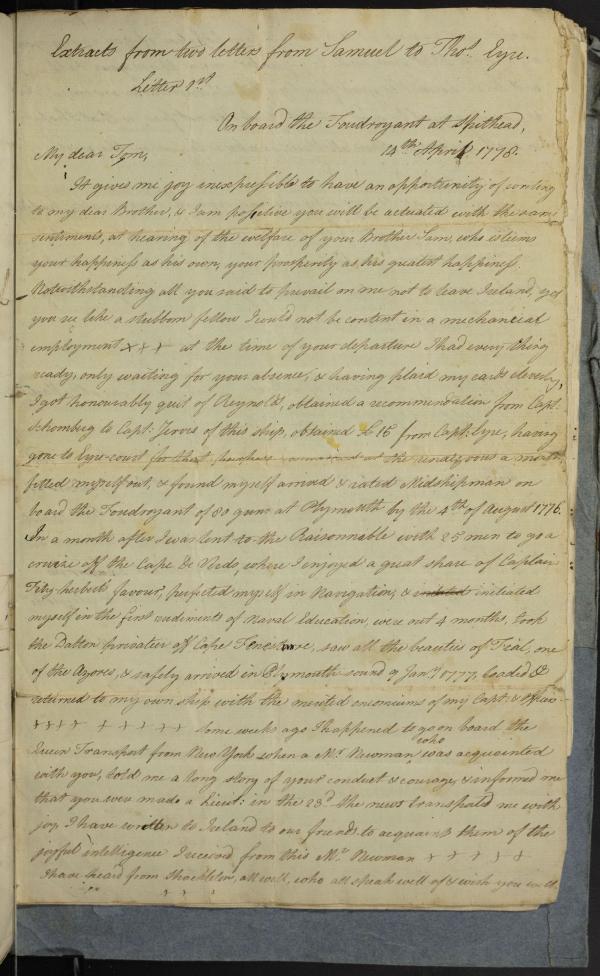 Extracts from two letters from Samuel to Thos. Eyre.
Letter 1st
On board the Foudroyant at Spithead,
14th April 1778.
My dear Tom,
It gives me joy inexpressible to have an opportunity of writing
to my dear Brother, & I am positive you will be actuated with the same
sentiments, at hearing of the welfare of your Brother Sam, who esteems
your happiness as his own, your prosperity as his greatest happiness.
Notwithstanding all you said to prevail on me not to leave Ireland, yet
you see like a stubborn fellow I could not be content in a mechanical
employment x + + at the time of your departure I had every thing
ready, only waiting for your absence, & having plaid my cards cleverly,
I got honourably quit of Reynolds, obtained a recommendation from Capt.
Schomberg to Capt. Jervis of this ship, obtained £15 from Capt. Eyre, having
gone to Eyre-court for that purpose at the rendezvous a
fitted myself out, & found myself arrived & rated Midshipman on
board the Foudroyant of 80 guns at Plymouth by the 4th of August 1776.
In a month after I was lent to the Raisonnable with 25 men to go a
cruize off the Cape De Verds, where I enjoyed a great share of Captain
Fitz-herbert favour, perfected myself in Navigation, & initiated
myself in the first rudiments of Naval Education, were out 4 months, took
the Dalton privateer off Cape Finesterre, saw all the beauties of Fial, one
of the Azores, & safely arrived in Plymouth sound 9 Jany. 1777, loaded &
returned to my own ship with the merited encomiums of my Capt. &
++++ + + + + + Some weeks ago I happened to go on board the
Queen Transport from New York when a Mr. Newman who was acquainted
with you, told me a long story of your conduct & courage, & informed me
that you were made a Lieut: in the 23d. the news transported me with
joy, I have written to Ireland to our friends to acquaint them of the
joyful intelligence I received from this Mr. Newman + + + + +
I have heard from Shackleton, all well, who all speak well of & wish you well.
+ + +